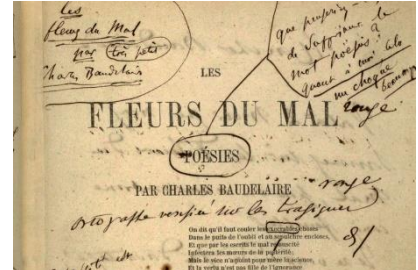 Les
fleurs du Mal
par très petit
Charles Baudelaire
que pensez-
de supprimer le
mot poésies ?
quant à moi cela
me choque beaucoup
LES
FLEURS DU MAL
rouge
POÉSIES
PAR CHARLES BAUDELAIRE
rouge
ortographe
On dit qu'il faut couler les execrables choses
Dans le puits de l'oubli et au sepulchre encloses,
Et que par les escrits le mal resuscité
Infectera les mœurs de la postérité;
Mais le vice n'a point pour mère la science,
Et la vertu n'est pas fille de l'ignorance.